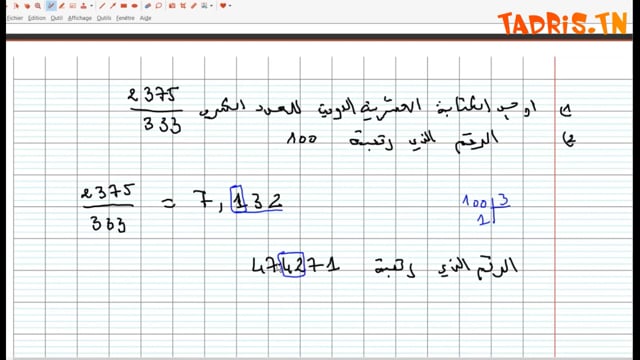 TADRIS.TN
Fichier Edition Affichage Outils Fenêtre Aide
1) أوجد الكتابة العشرية الدورية للعدد الكسري 2375/333
2) الرقم الذي رتبته 100
2375/333 = 7,132
100 3
1
الرقم الذي رتبته 474271